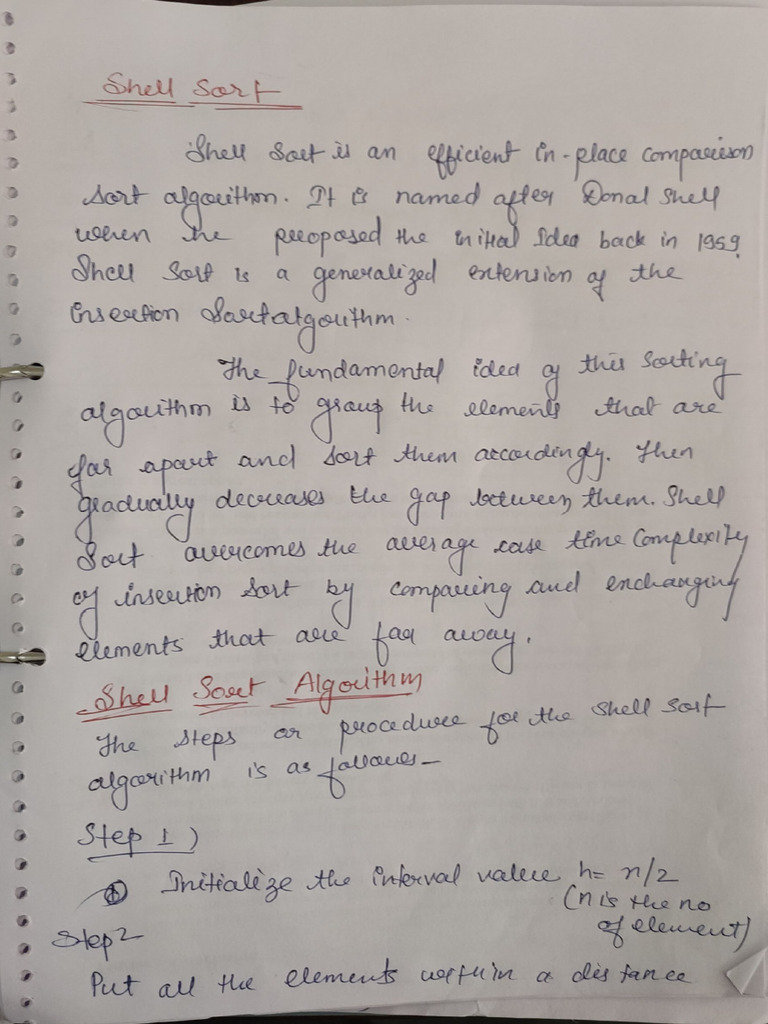 Shell Sort
Shell Sort is an efficient in-place comparison
sort algorithm. It is named after Donal Shell
when he proposed the initial Idea back in 1959.
Shell Sort is a generalized extension of the
insertion Sort algorithm.
The fundamental idea of this sorting
algorithm is to group the elements that are
far apart and sort them accordingly. Then
gradually decreases the gap between them. Shell
Sort overcomes the average case time complexity
of insertion sort by comparing and exchanging
elements that are far away.
Shell Sort Algorithm
The steps or procedure for the shell sort
algorithm is as follows-
Step 1)
① Initialize the interval value h= n/2
(n is the no
of element)
Step2-
Put all the elements within a distance